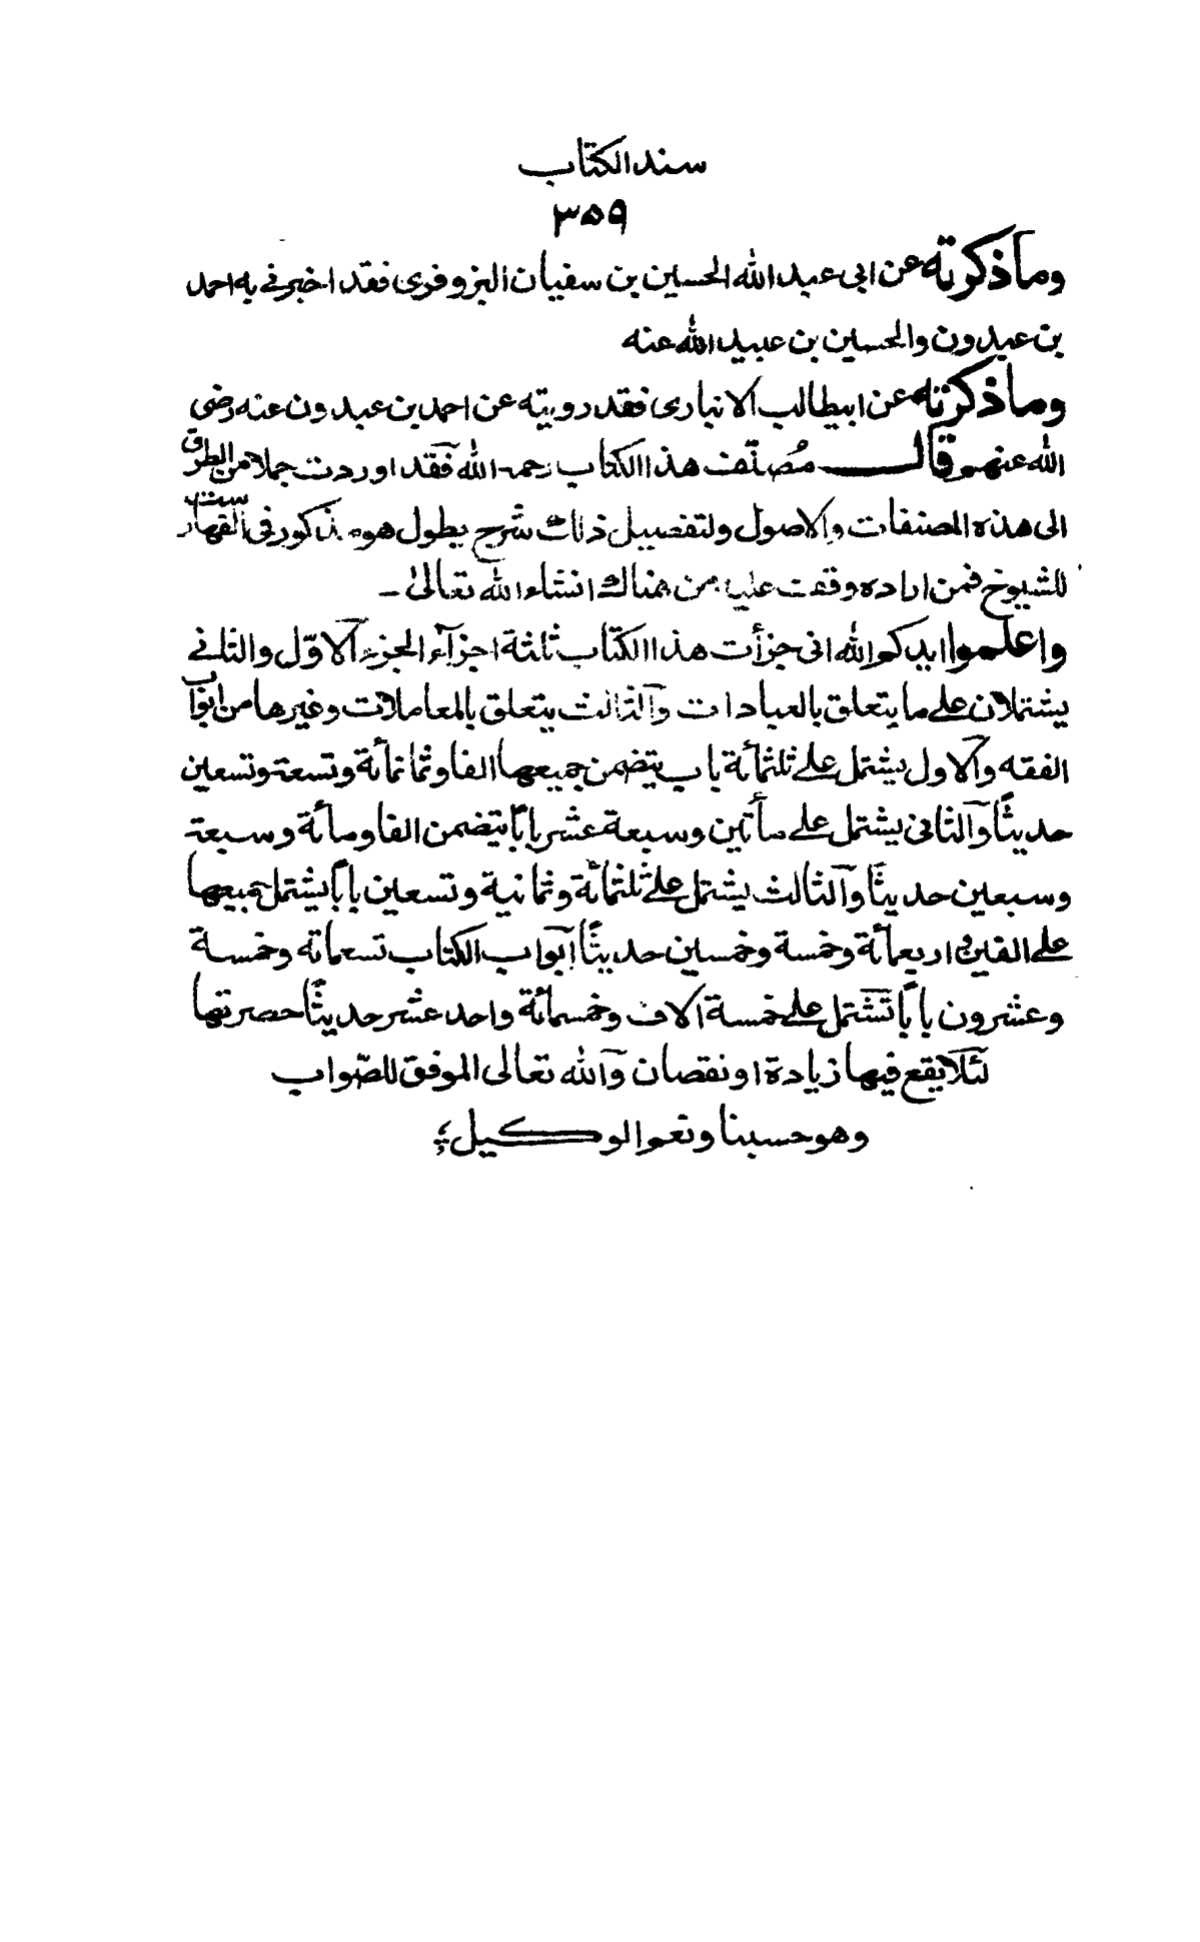 سند الكتاب
٣٥٩
وما ذكرته عن ابى عبد الله الحسين بن سفيان البزوفرى فقد اخبرنى به احمد
بن عبدون والحسين بن عبيد الله عنه
وما ذكرته عن ابيطالب الانبارى فقد رويته عن احمد بن عبدون عنه رضى
الله عنهم قال مصنّف هذا الكتاب رحمه الله فقد اوردت جملا من الطرق
الى هذه المصنفات والاصول ولتفصيل ذلك شرح يطول هو مذكور فى الفهارست
للشيوخ فمن اراده وقف عليه من هناك انشاء الله تعالىٰ –
واعلموا ايدكم الله انى جزأت هذا الكتاب ثلثة اجزآء الجزء الاوّل والثانى
يشتملان على ما يتعلق بالعبادات والثالث يتعلق بالمعاملات وغيرها من ابواب
الفقه والاول يشتمل على ثلثمائة باب يتضمن جميعها الفا وثمانمأئة وتسعة وتسعين
حديثًا والثانى يشتمل على مأتين وسبعة عشر بابًا يتضمن الفا ومائة وسبعة
وسبعين حديثًا والثالث يشتمل على ثلثمائة وثمانية وتسعين بابًا يشتمل جميعها
على الفين واربعمائة وخمسة وخمسين حديثًا ابواب الكتاب تسعمائه وخمسة
وعشرون بابًا تشتمل على خمسة الاف وخمسمائة واحد عشر حديثًا حصرتها
لئلا يقع فيها زيادة او نقصان والله تعالى الموفق للصّواب
وهو حسبنا ونعم الوكيل